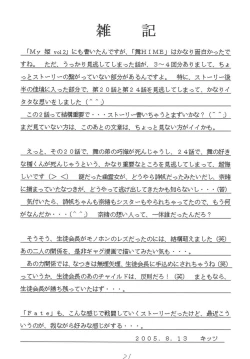 雑　記
「Ｍｙ 擢 vol.2」にも書いたんですが、「舞HiME」はかなり面白かったで
すね。　ただ、うっかり見逃してしまった話が、３～４回分ありまして、ちょ
っとストーリーの繋がっていない部分があるんですよ。　特に、ストーリー後
半の佳境に入った部分で、第２０話と第２４話を見逃してしまって、かなりイ
タタな思いをしました（＾＾;）
この２話って結構重要で・・・ストーリー書いちゃうとまずいかな？（＾＾;）
まだ見ていない方は、このあとの文章は、ちょっと見ない方がイイかも。
えっと、その２０話で、舞の弟の巧海が死んじゃうし、２４話で、舞の好き
な楯くんが死んじゃうという、かなり重要なところを見逃してしまって、超悔
しいです（＞ ＜）　謎だった歯医女が、どうやら詩帆だったみたいだし、奈緒
に捕まっていたなつきが、どうやって逃げ出してきたか知らないし・・・(苦)
気付いたら、詩帆ちゃんも奈緒もシスターもやられちゃってたので、もう何
がなんだか・・・(＾＾;)　奈緒の想い人って、一体誰だったんだろ？
そうそう、生徒会長がモノホンのレズだったのには、結構萌えました（笑）
あの二人の関係を、是非ギャグ漫画で描いてみたい気も・・・。
あの関係では、なつきは無理矢理、生徒会長に手込めにされちゃうね（笑）
っていうか、生徒会長のあのチャイルドは、反則だろ！（笑）　まともなら、
生徒会長が勝ち残っていたはず・・・。
「Ｆａｔｅ」も、こんな感じで戦闘していくストーリーだったけど、最近こう
いうのが、我ながら好みな感じがする・・・。
２００５．８．１３　キッジ
21